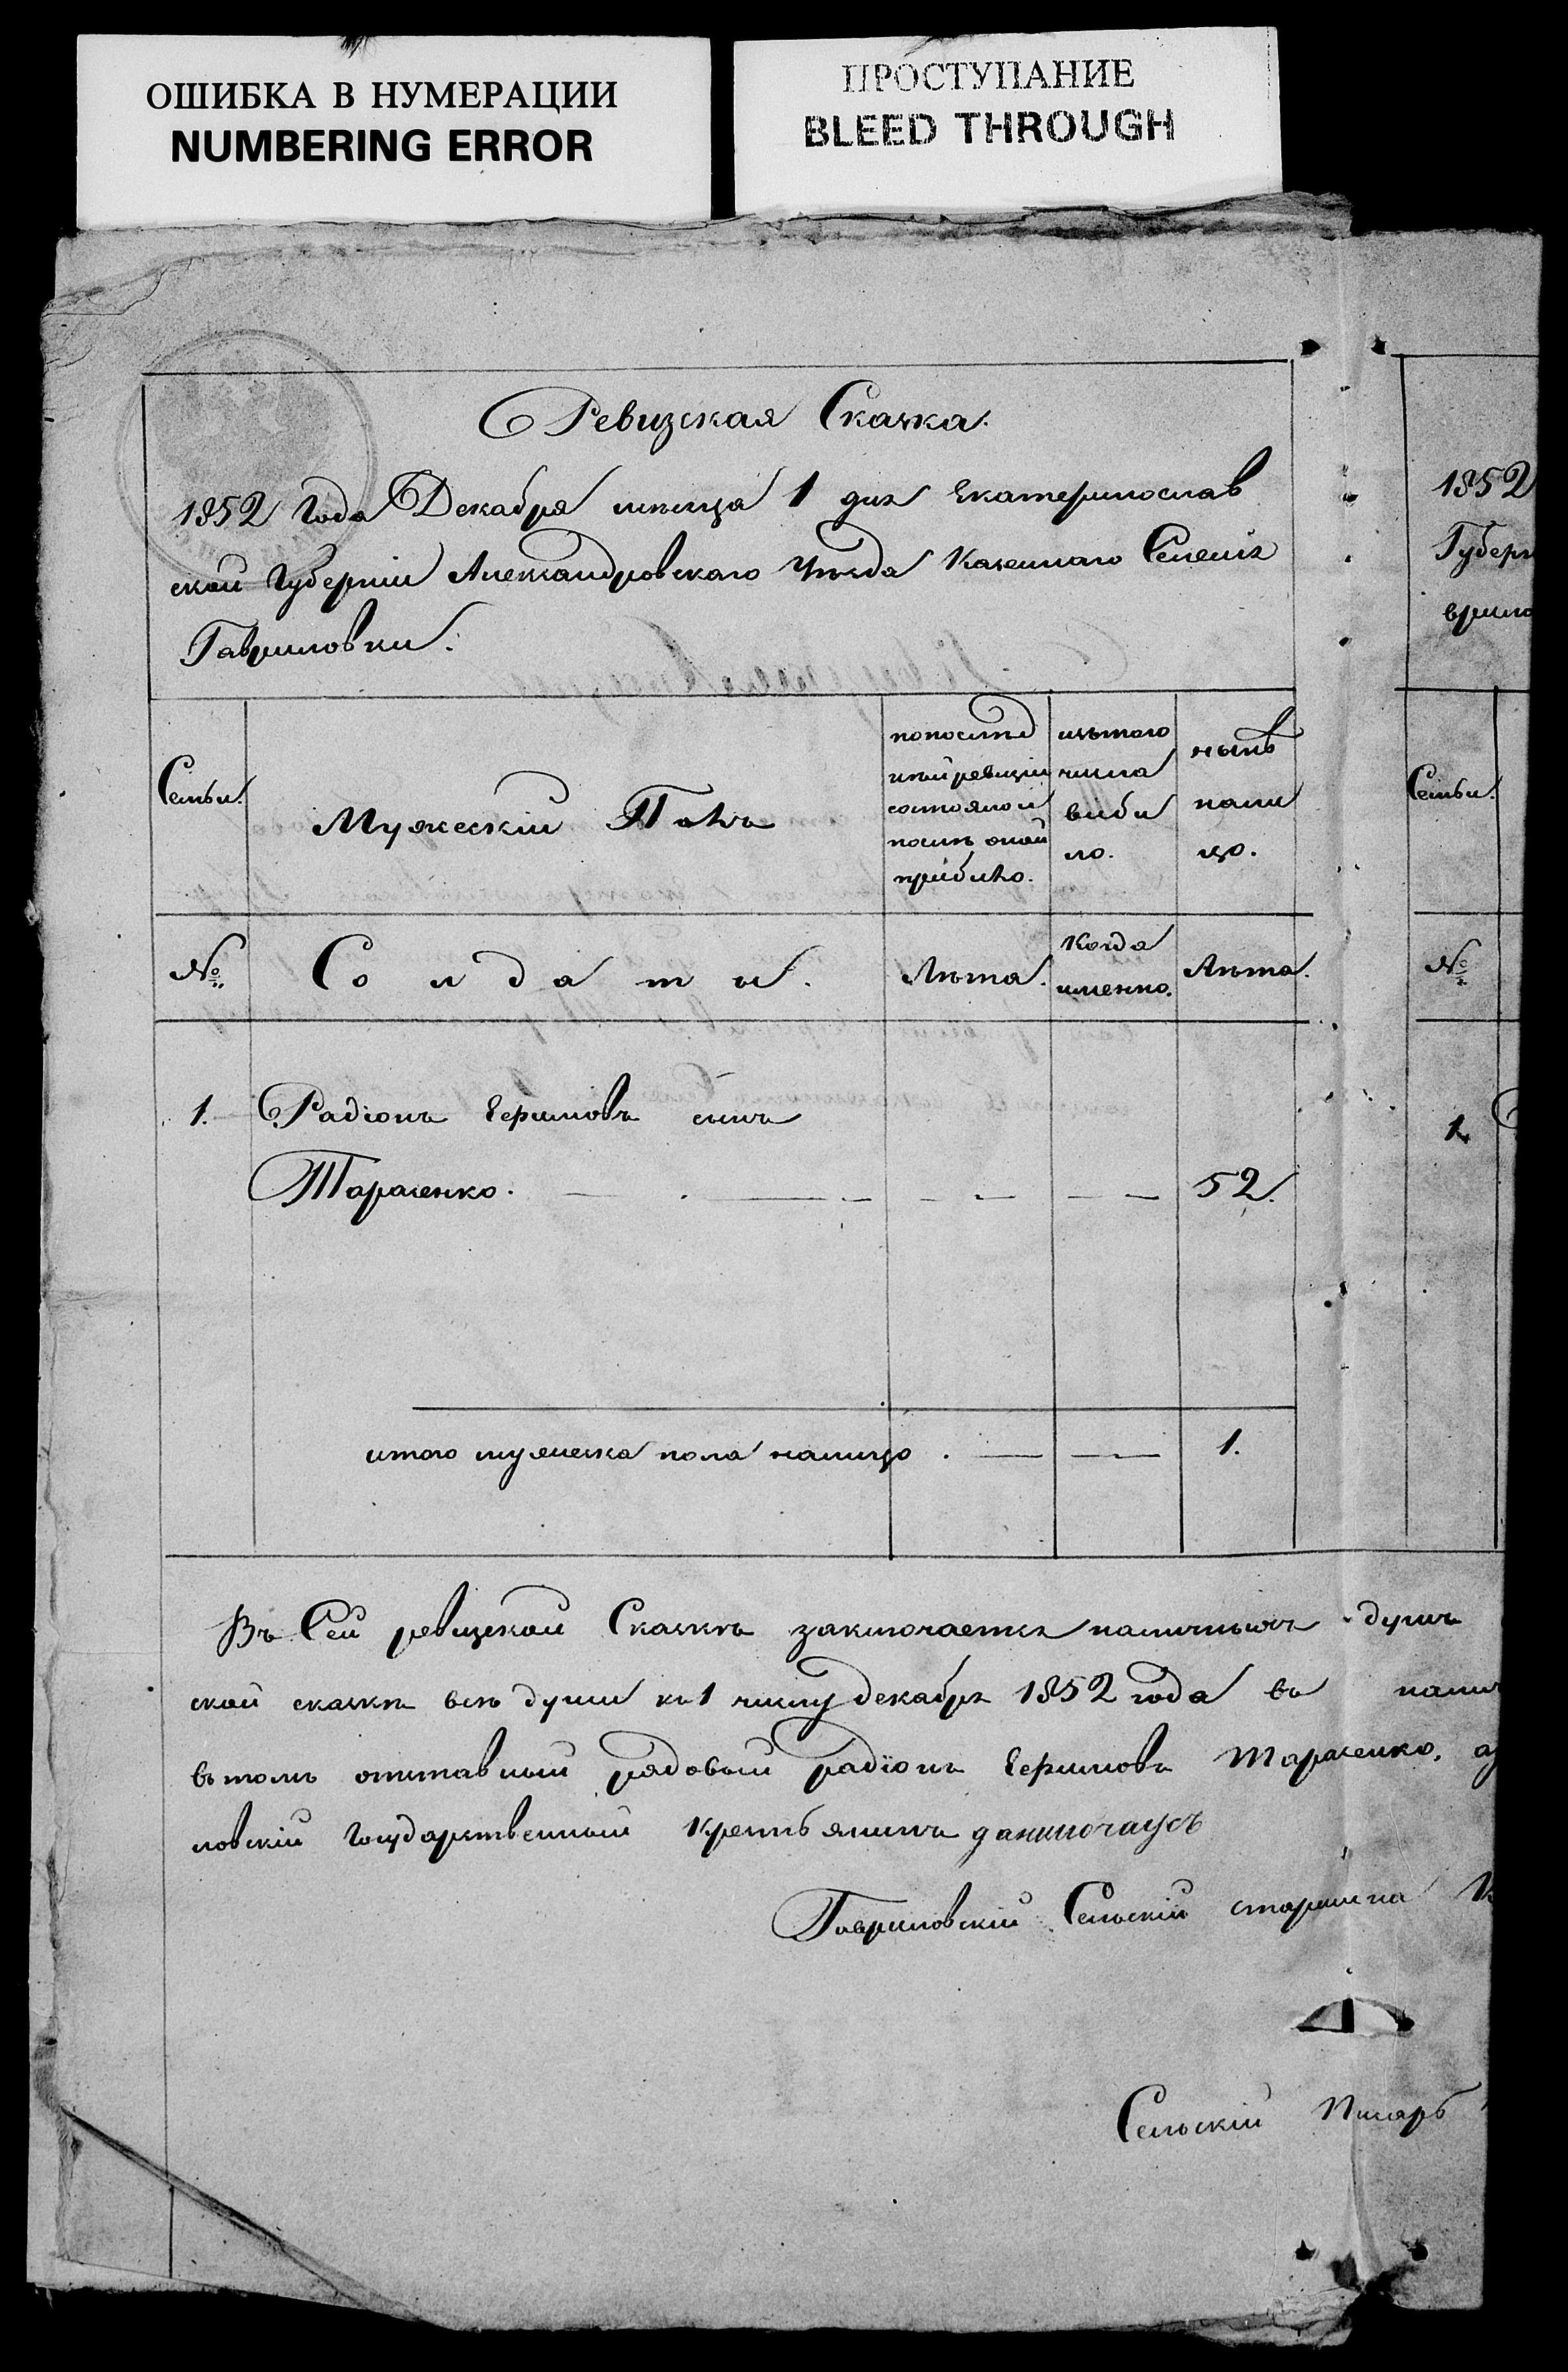 ОШИБКА В НУМЕРАЦИИ
NUMBERING ERROR
ПРОСТУПАНИЕ
BLEED THROUGH
Ревизская Сказка.
1852 Года Декабря месяца 1 дня Екатеринослав
ской Губерніи Александровскаго Уѣзда Казеннаго Селенія
Гавриловки.
Семьи.
Мужескій Полъ
попослѣд
ней ревизіи
состояло и
послѣ оной
прибыло.
изътого
числа
выбы
ло.
нынѣ
нали
цо.
№
Солдаты.
Лѣта.
Когда
именно.
Лѣта.
1. Радіонъ Ефимовъ сынъ
Тарасенко. 52.
итого мужеска пола налицо . 1.
Въ Сей ревизской Сказкѣ заключается наличныхъ душъ
ской сказкѣ всѣ души къ 1 числу декабря 1852 года въ налич
вътомъ отставный рядовый радіонъ Ефимовъ Тарасенко,
ловскій Государственный Крестьянинъ
Гавриловскій Сельскій старшина
Сельскій Писарь
1852
Губерн
врило
Семьи.
№
1.